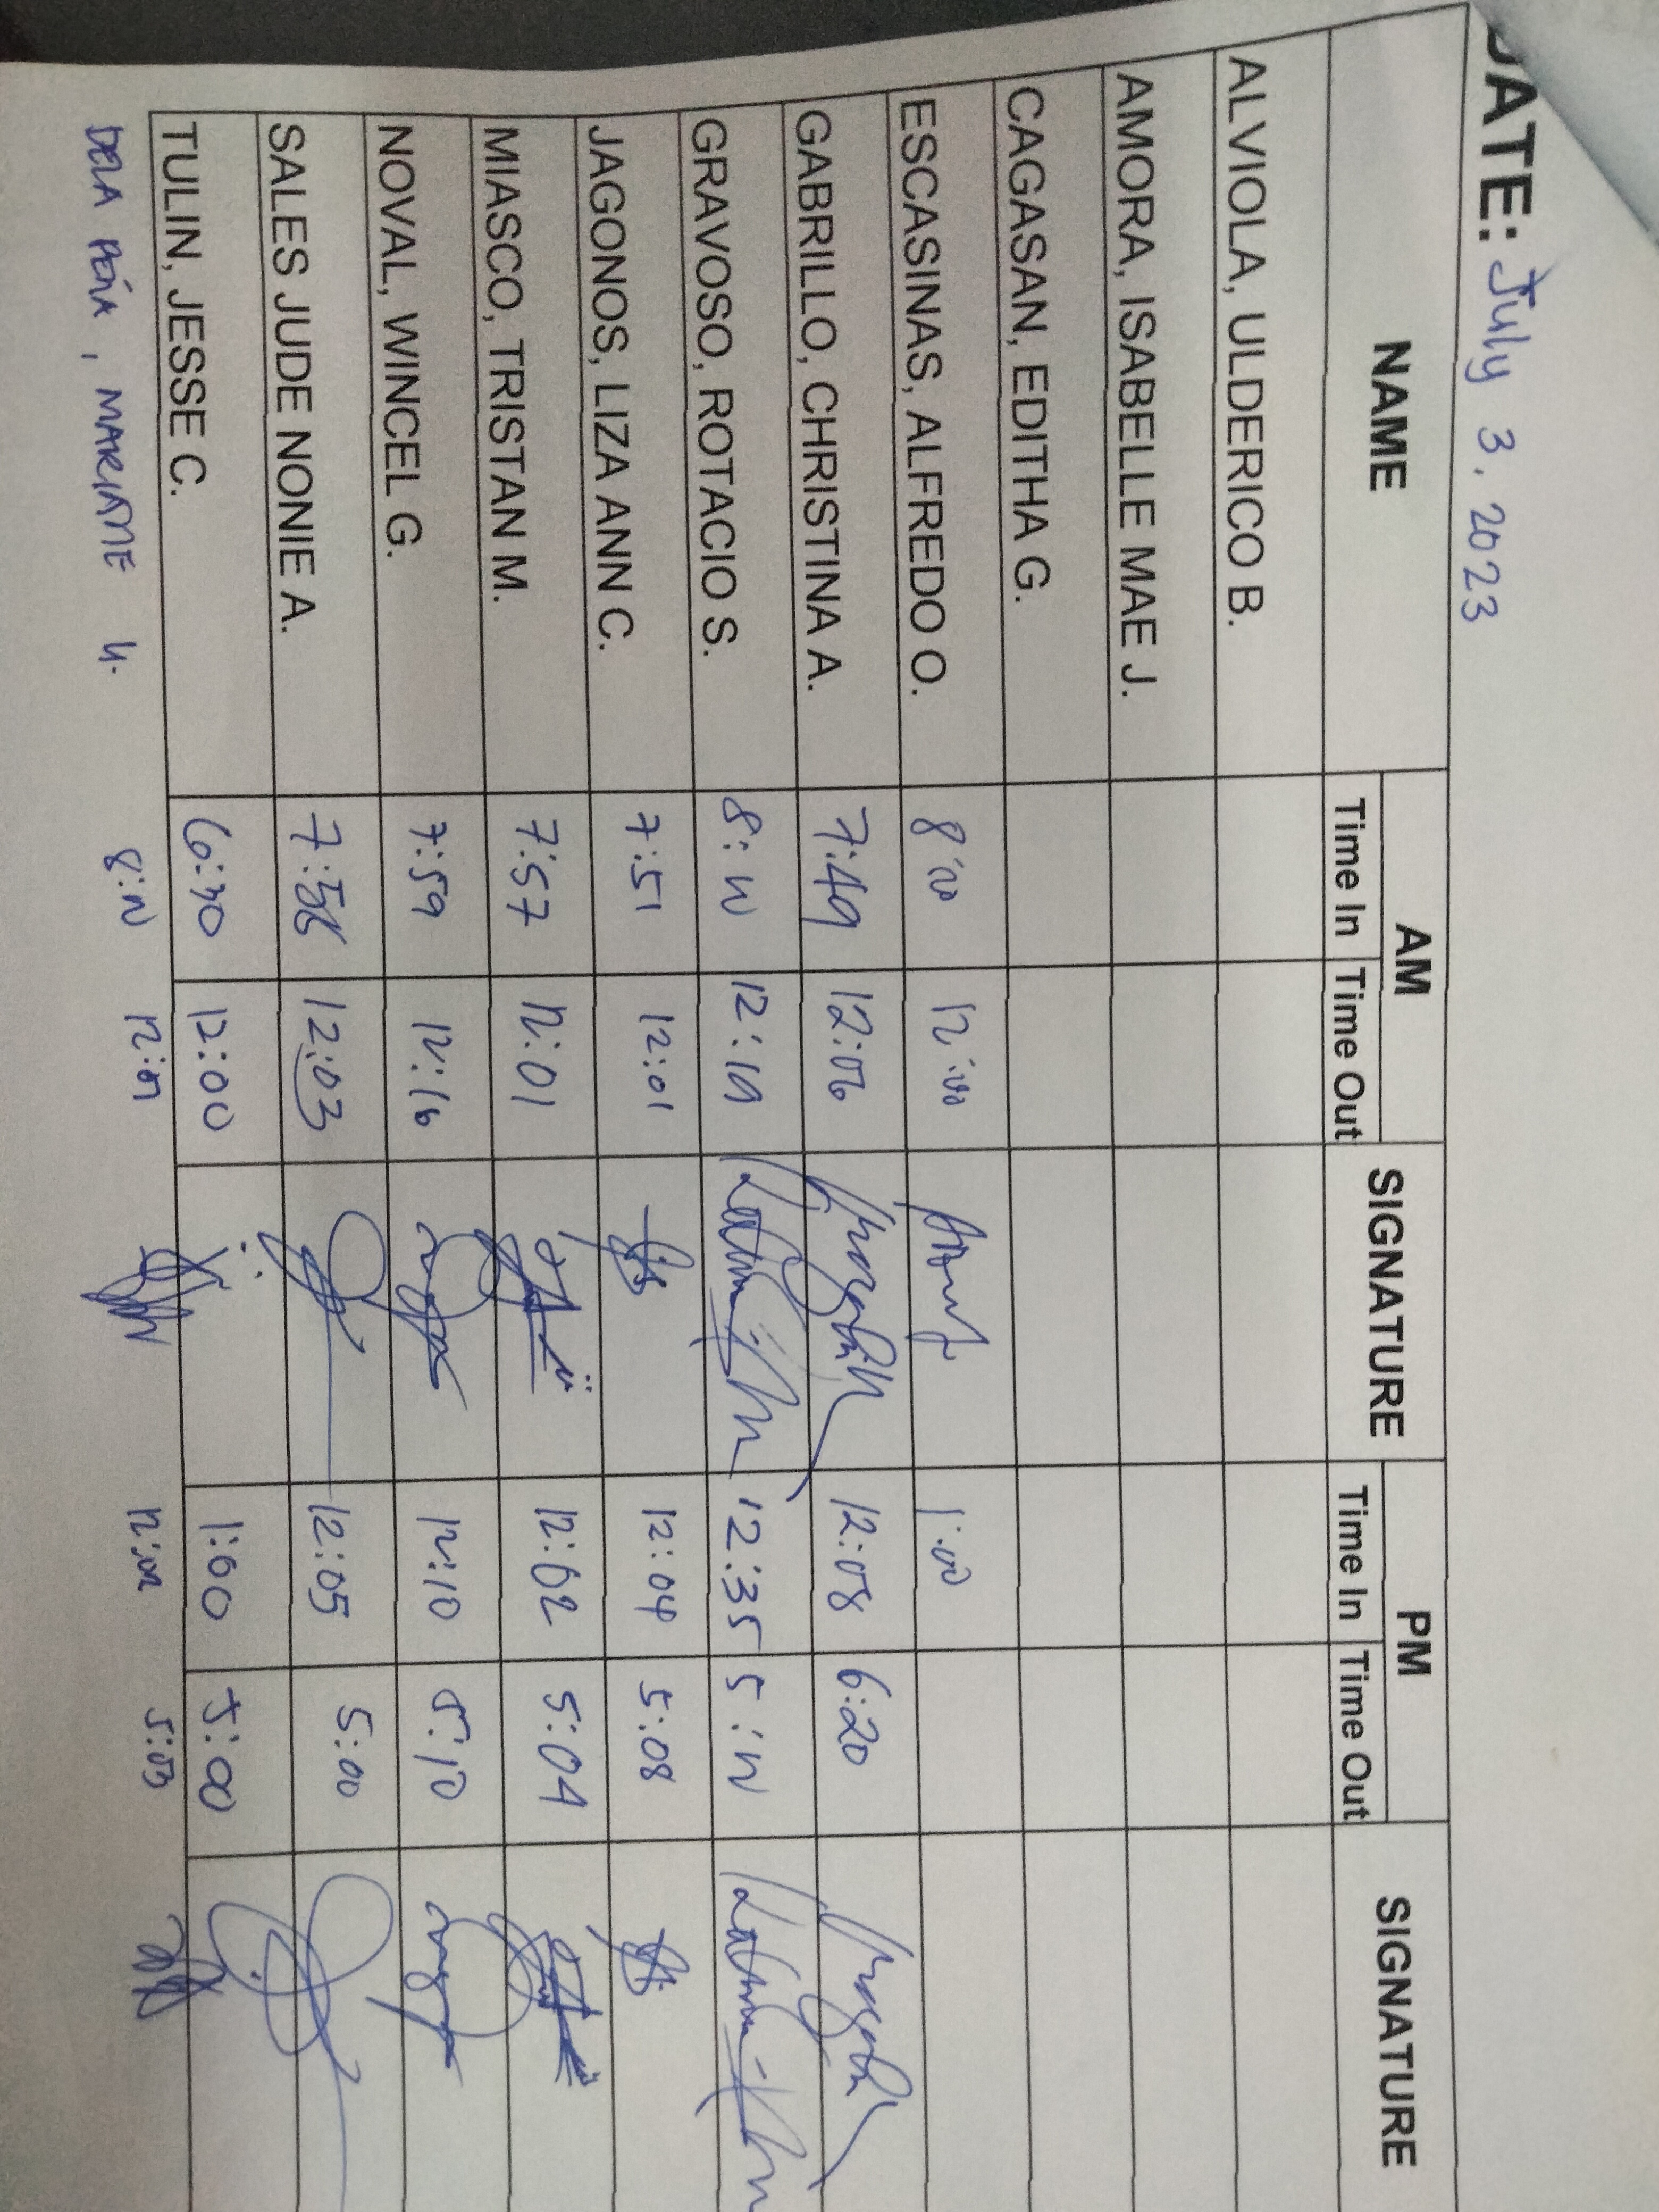 DATE: July 3, 2023
NAME AM SIGNATURE PM SIGNATURE
Time In Time Out Time In Time Out
ALVIOLA, ULDERICO B.
AMORA, ISABELLE MAE J.
CAGASAN, EDITHA G.
ESCASINAS, ALFREDO O. 8:00 12:00 1:00
GABRILLO, CHRISTINA A. 7:49 12:06 12:08 6:20
GRAVOSO, ROTACIO S. 8:00 12:19 12:35 5:00
JAGONOS, LIZA ANN C. 7:51 12:01 12:04 5:08
MIASCO, TRISTAN M. 7:57 12:01 12:02 5:04
NOVAL, WINCEL G. 7:59 12:10 5:10
SALES JUDE NONIE A. 7:58 12:03 12:05 5:00
TULIN, JESSE C. 6:30 12:00 1:00 5:00
DELA PEÑA, MARIANE 5:03